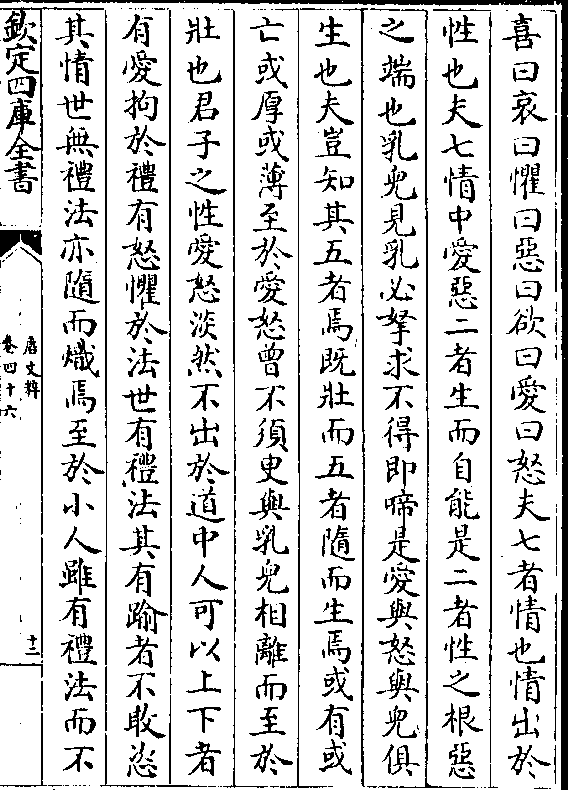 喜曰哀曰懼曰惡曰欲曰愛曰怒夫七者情也情出於
性也夫七情中愛惡二者生而自能是二者性之根惡
之端也乳兒見乳必拏求不得即啼是愛與怒與兒俱
生也夫豈知其五者焉既壯而五者隨而生焉或有或
亡或厚或薄至於愛怒曾不須臾與乳兒相離而至於
壯也君子之性愛怒淡然不出於道中人可以上下者
有愛拘於禮有怒懼於法世有禮法其有踰者不敢恣
其情世無禮法亦隨而熾焉至於小人雖有禮法而不
欽定四庫全書
唐文粹
卷四十六
十三